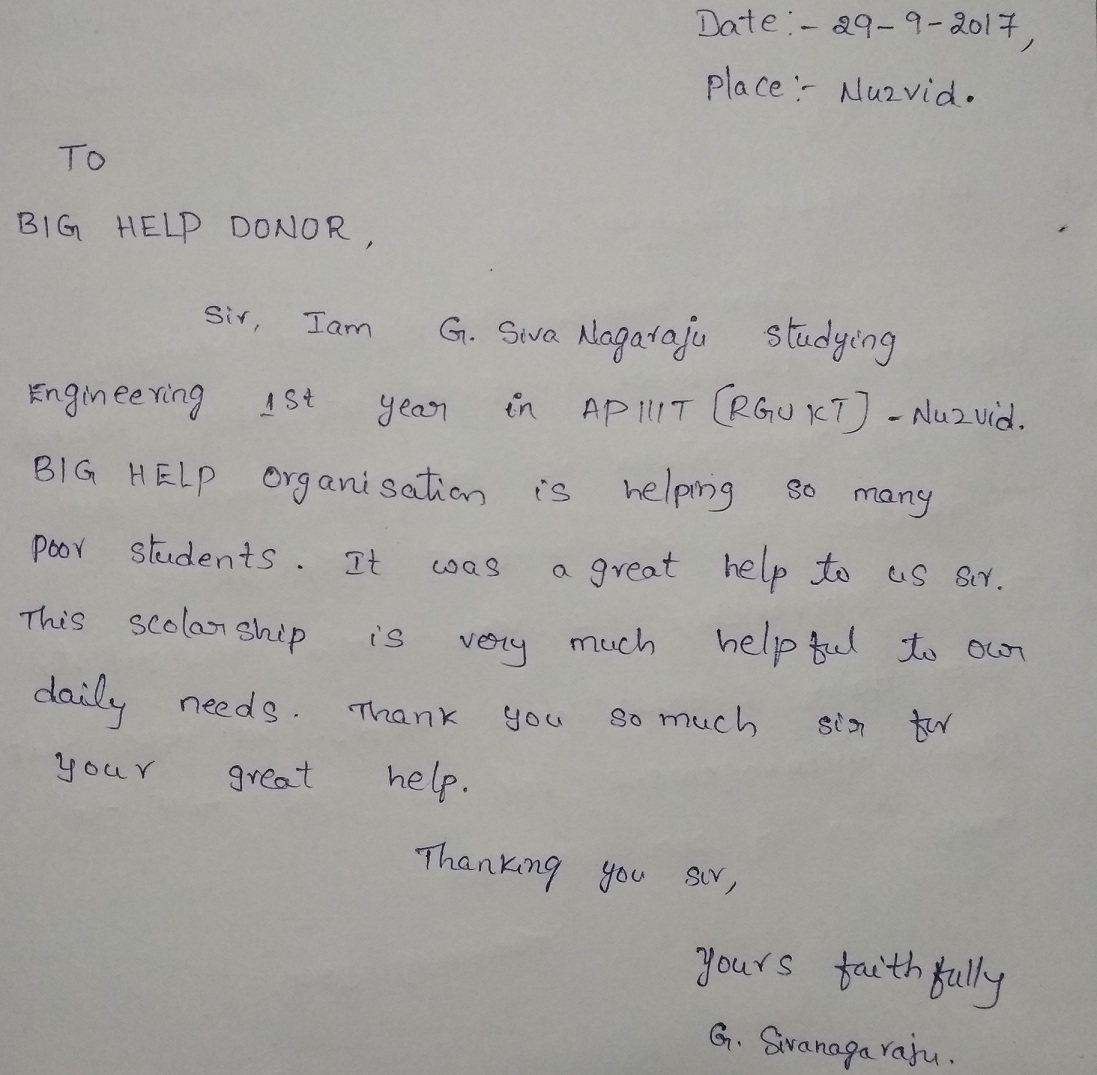 Date:- 29-9-2017,
Place:- Nuzvid.
TO
BIG HELP DONOR,
Sir, Iam G. Siva Nagaraju studying
Engineering 1st year in AP IIIT [RGUKT] - Nuzvid.
BIG HELP organisation is helping so many
poor students. It was a great help to us sir.
This scolarship is very much helpful to our
daily needs. Thank you so much sir for
your great help.
Thanking you sir,
yours faithfully
G. Sivanagaraju.